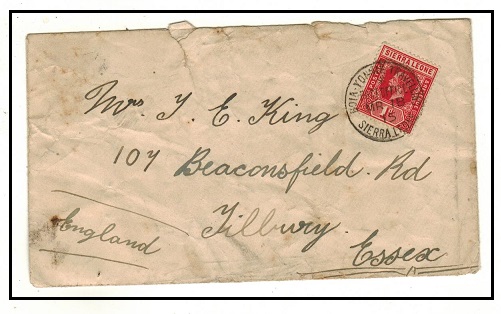 SIERRA LEONE
1d
SIERRA L
Mrs J. E. King
107
Beaconsfield Rd
Tilbury.
Essex
England